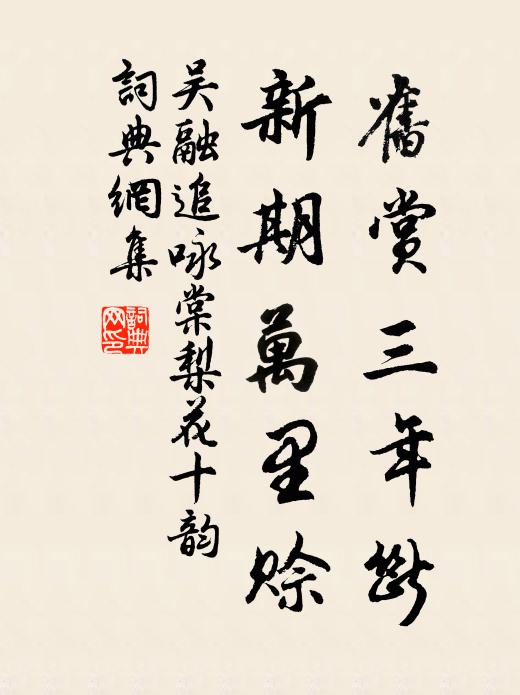 舊賞三年斷
新期萬里賒
吳融追咏棠梨花十韵
詞典網集
詞典网印